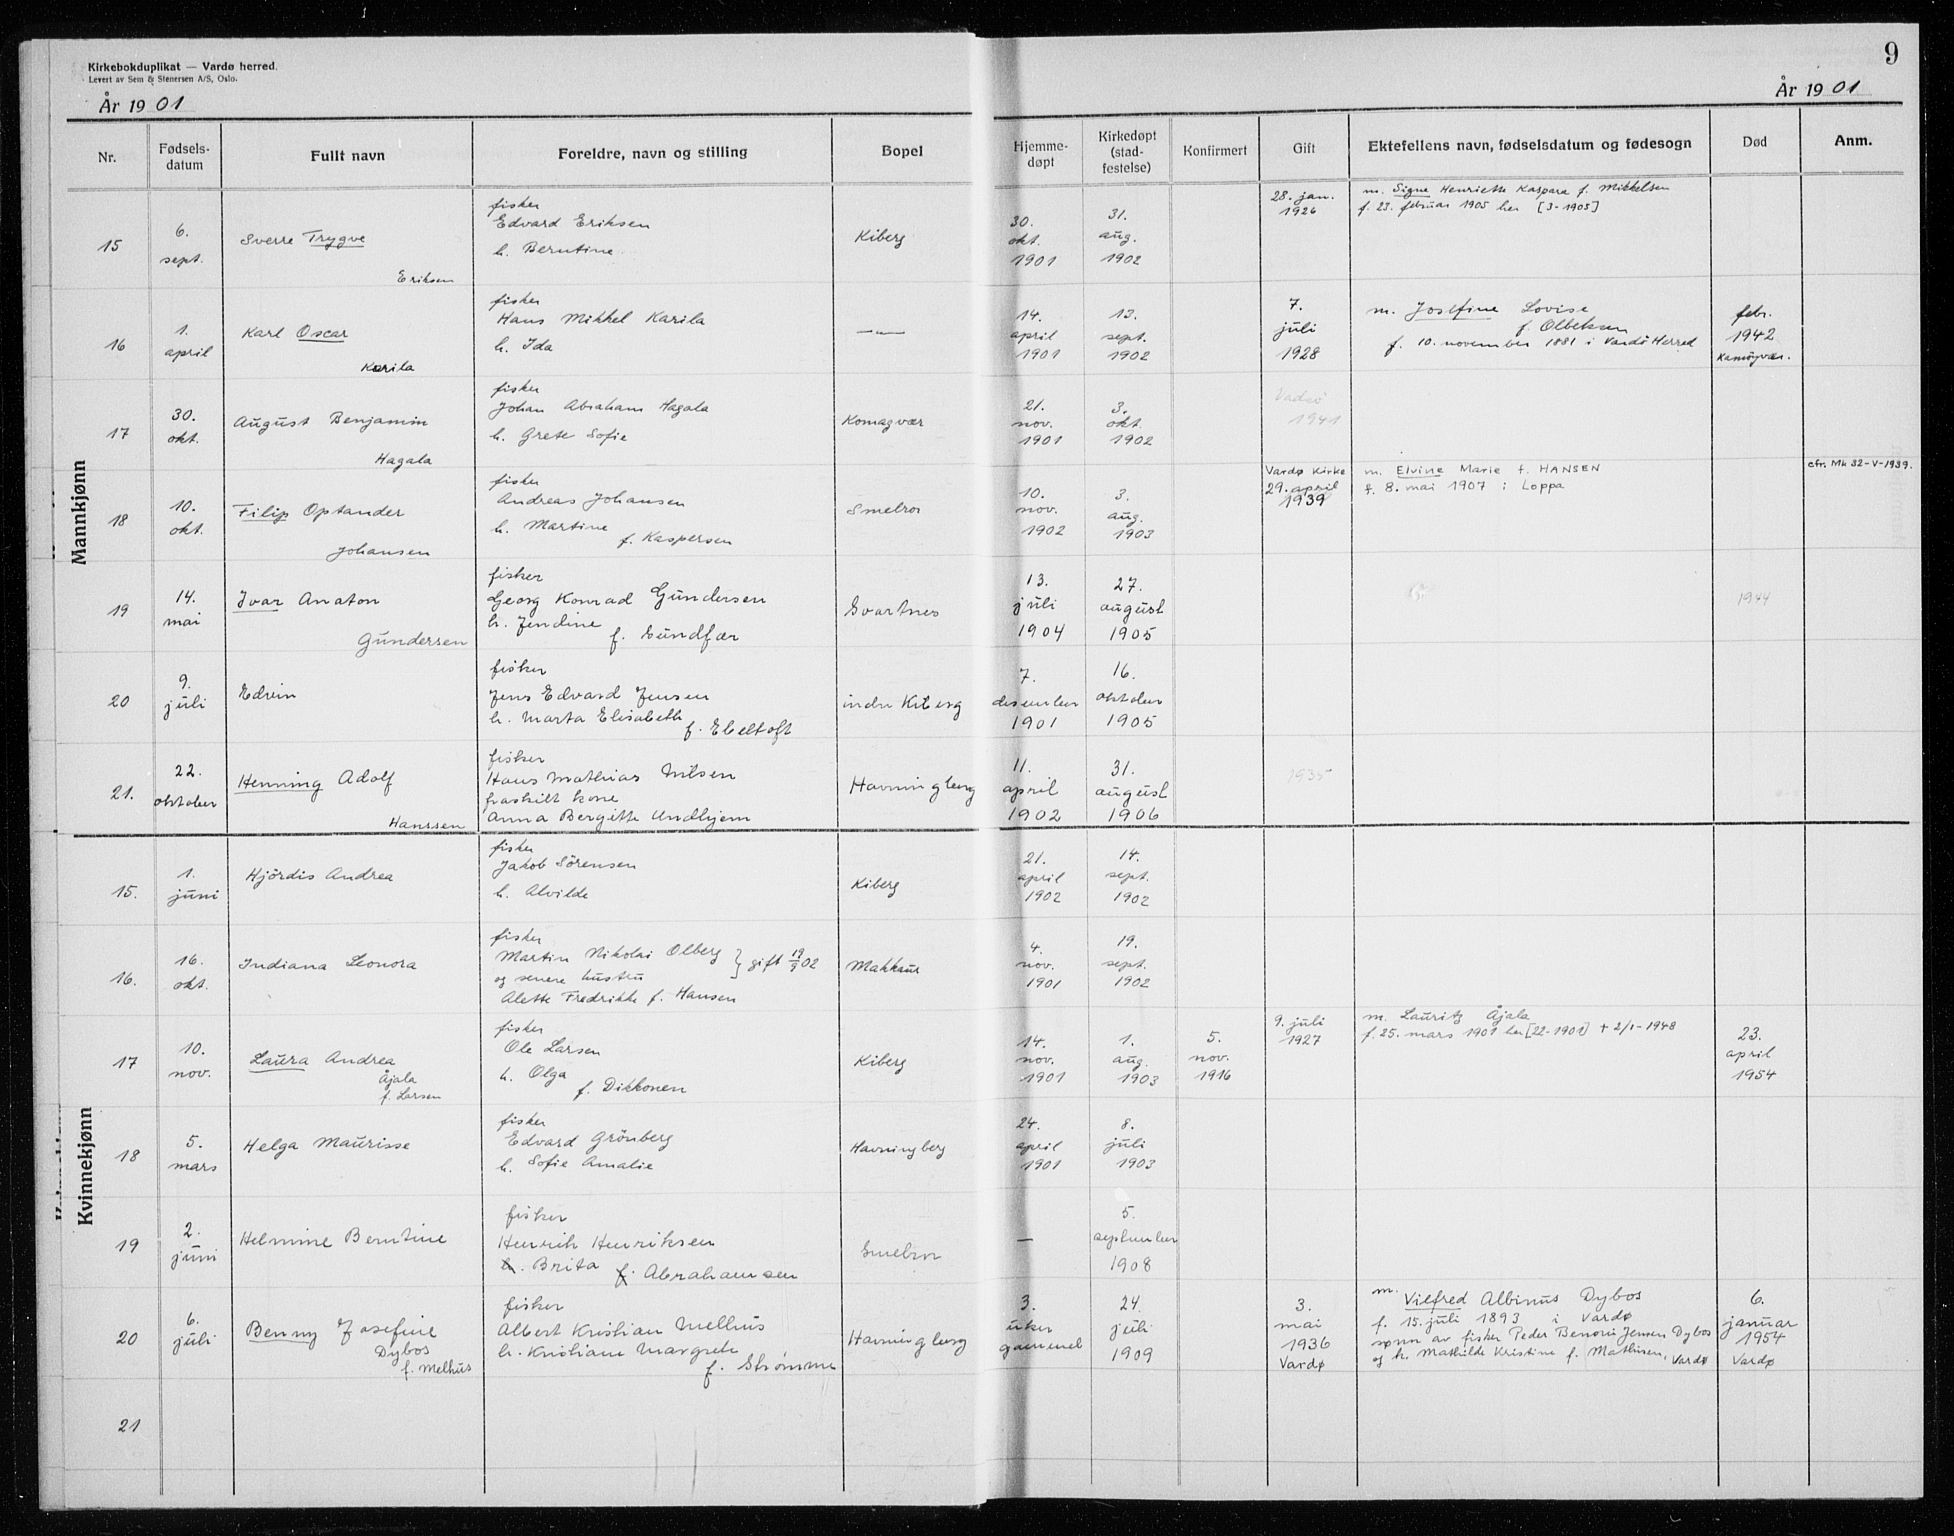 Kirkebokduplikat — Vardø herred.
Levert av Sem & Stenersen A/S, Oslo.
9
År 1901
År 1901
Nr.
Fødsels-
datum
Fullt navn
Foreldre, navn og stilling
Bopel
Hjemme-
døpt
Kirkedøpt
(stad-
festelse)
Konfirmert
Gift
Ektefellens navn, fødselsdatum og fødesogn
Død
Anm.
Mannkjønn
15
6.
sept.
Sverre Trygve
Eriksen
fisker
Edvard Eriksen
h. Berntine
Kiberg
30.
okt.
1901
31.
aug.
1902
28. jan.
1926
m. Signe Henriette Kaspara f. Mikkelsen
f. 23. februar 1905 her [3-1905]
16
1.
april
Karl Oscar
Karila
fisker
Hans Mikkel Karila
h. Ida
—"—
14.
april
1901
13.
sept.
1902
7.
juli
1928
m. Josefine Lovise
f. Olbeksen
f. 10. november 1881 i Vardö Herred
febr.
1942
Kamöyvær.
17
30.
okt.
August Benjamin
Hagala
fisker
Johan Abraham Hagala
h. Grete Sofie
Komagvær
21.
nov.
1901
3.
okt.
1902
Vadsö
1941
18
10.
okt.
Filip Optander
Johansen
fisker
Andreas Johansen
h. Martine
f. Kaspersen
Smelror
10.
nov.
1902
3.
aug.
1903
Vardø Kirke
29. april
1939
m. Elvine Marie f. HANSEN
f. 8. mai 1907 i Loppa
cfr. Mk 32-V-1939.
19
14.
mai
Ivar Anaton
Gundersen
fisker
Georg Konrad Gundersen
h. Jendine
f. Sundfær
Svartnes
13.
juli
1904
27.
august
1905
1944
20
9.
juli
Edvin
fisker
Jens Edvard Jensen
h. Marta Elisabeth
f. Ebeltoft
indre Kiberg
7.
desember
1901
16.
oktober
1905
21.
22.
oktober
Henning Adolf
Hanssen
fisker
Hans Mathias Nilsen
fraskilt kone
Anna Bergitte Undhjem
Havningberg
11.
april
1902
31.
august
1906
1935
Kvinnekjønn
15.
1.
juni
Hjördis Andrea
fisker
Jakob Sörensen
h. Alvilde
Kiberg
21.
april
1902
14.
sept.
1902
16.
16.
okt.
Indiana Leonora
fisker
Martin Nikolai Olberg } gift 19/9 02
og senere hustru
Alette Fredrikke f. Hansen
Makkaur
4.
nov.
1901
19.
sept.
1902
17
10.
nov.
Laura Andrea
Åjala
f. Larsen
fisker
Ole Larsen
h. Olga
f. Dikkonen
Kiberg
14.
nov.
1901
1.
aug.
1903
5.
nov.
1916
9. juli
1927
m. Lauritz Åjala
f. 25. mars 1901 her [22-1901] + 2/1-1948
23.
april
1954
18
5.
mars
Helga Maurisse
fisker
Edvard Grönberg
h. Sofie Amalie
Havningberg
24.
april
1901
8.
juli
1903
19
2.
juni
Helmine Berntine
fisker
Henrik Henriksen
h. Brita f. Abrahamsen
Smelror
—
5.
september
1908
20
6.
juli
Benny Josefine
Dybos
f. Melhus
fisker
Albert Kristian Melhus
h. Kristiane Margrete
f. Strømme
Havningberg
3.
uker
gammel
24.
juli
1909
3.
mai
1936
Vardø
m.
Vilfred Albinus Dybos
f. 15. juli 1893 i Vardø
sønn av fisker Peder Benoni Jensen Dybos
og h. Mathilde Kristine f. Mathisen, Vardø
6.
januar
1954
Vardø
21